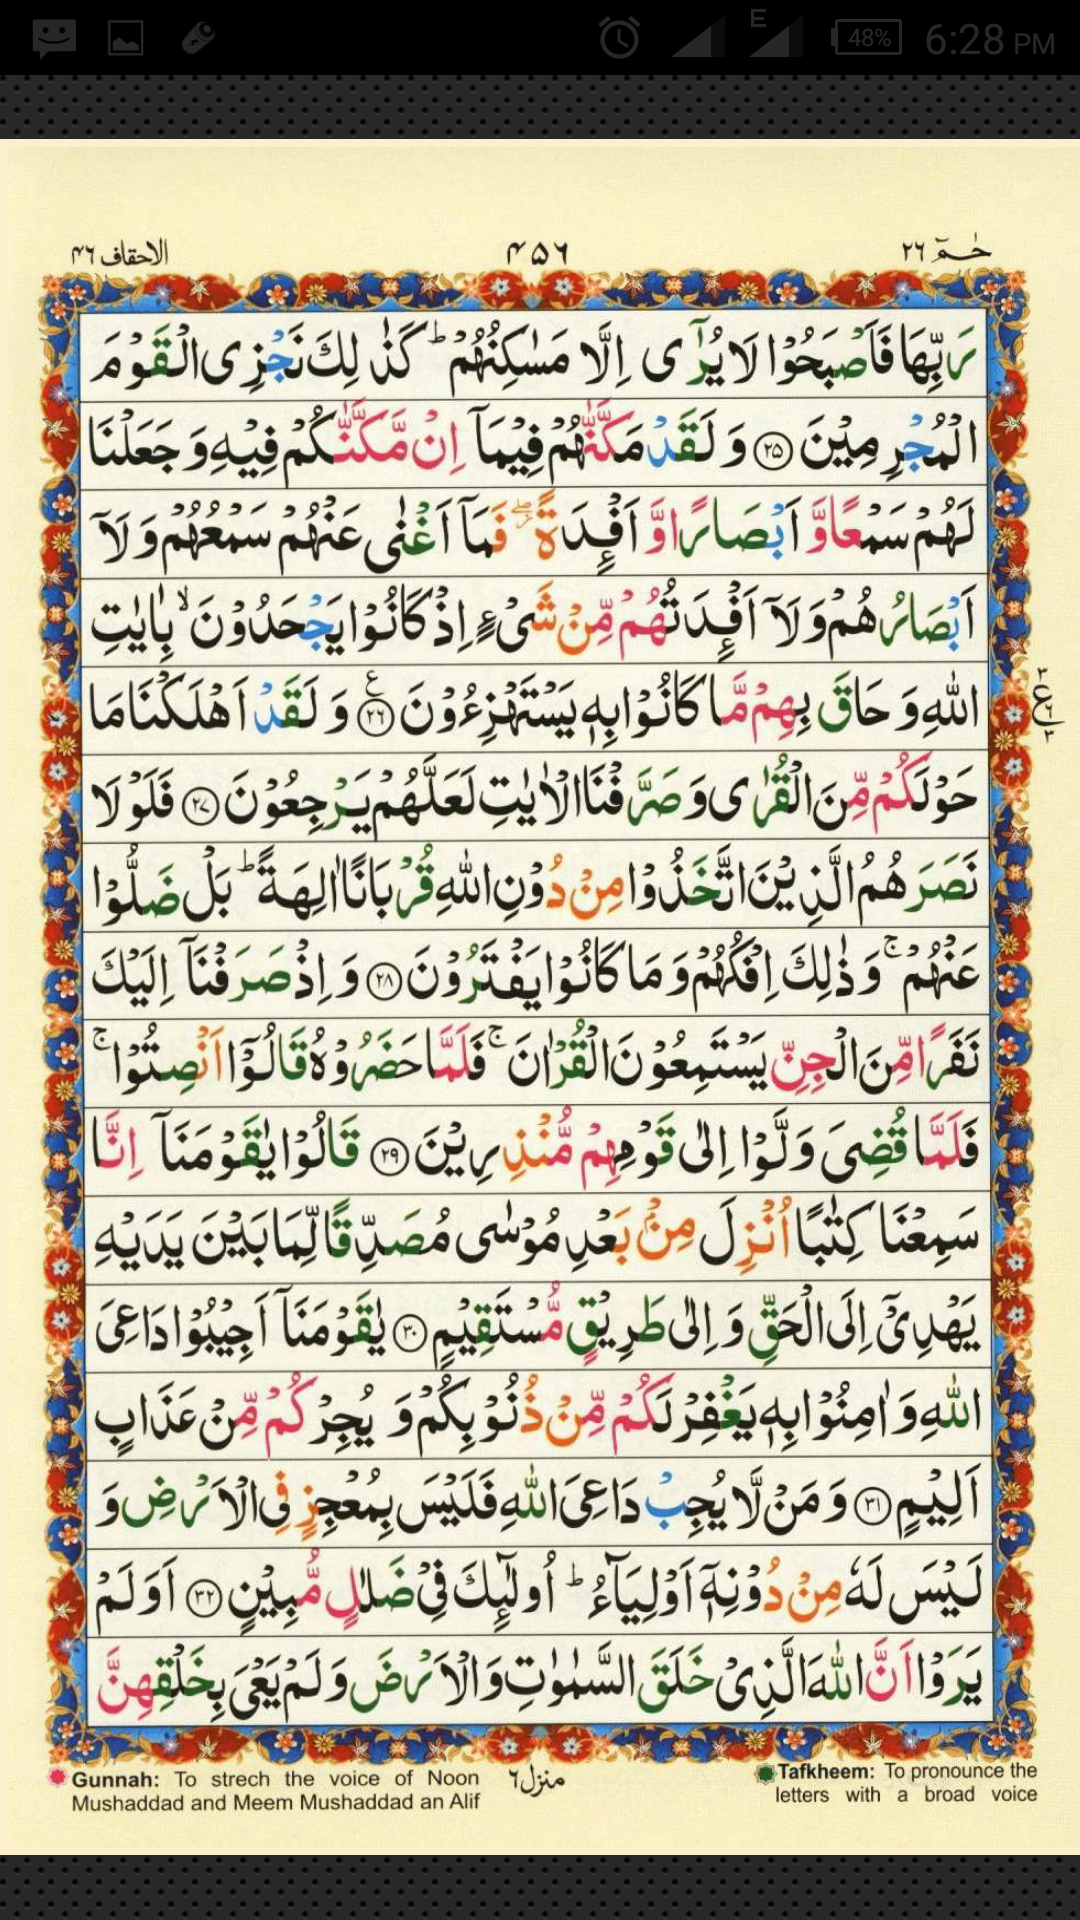 6:28 PM
48%
E
حٰمٓ ٢٦
٤٥٦
الاحقاف ٤٦
رَبِّهَا فَاَصْبَحُوْا لَا يُرٰٓى اِلَّا مَسٰكِنُهُمْ ؕ كَذٰلِكَ نَجْزِى الْقَوْمَ
الْمُجْرِمِيْنَ ﴿٢٥﴾ وَ لَقَدْ مَكَّنّٰهُمْ فِيْمَاۤ اِنْ مَّكَّنّٰكُمْ فِيْهِ وَ جَعَلْنَا
لَهُمْ سَمْعًا وَّ اَبْصَارًا وَّ اَفْـِٕدَةً ۖؗ فَمَاۤ اَغْنٰى عَنْهُمْ سَمْعُهُمْ وَ لَاۤ
اَبْصَارُهُمْ وَ لَاۤ اَفْـِٕدَتُهُمْ مِّنْ شَىْءٍ اِذْ كَانُوْا يَجْحَدُوْنَ ۙ بِاٰيٰتِ
اللّٰهِ وَ حَاقَ بِهِمْ مَّا كَانُوْا بِهٖ يَسْتَهْزِءُوْنَ ﴿٢٦﴾ ع وَ لَقَدْ اَهْلَكْنَا مَا
٣
ع
٦
٣
حَوْلَكُمْ مِّنَ الْقُرٰى وَ صَرَّفْنَا الْاٰيٰتِ لَعَلَّهُمْ يَرْجِعُوْنَ ﴿٢٧﴾ فَلَوْ لَا
نَصَرَهُمُ الَّذِيْنَ اتَّخَذُوْا مِنْ دُوْنِ اللّٰهِ قُرْبَانًا اٰلِهَةً ؕ بَلْ ضَلُّوْا
عَنْهُمْ ۚ وَ ذٰلِكَ اِفْكُهُمْ وَ مَا كَانُوْا يَفْتَرُوْنَ ﴿٢٨﴾ وَ اِذْ صَرَفْنَاۤ اِلَيْكَ
نَفَرًا مِّنَ الْجِنِّ يَسْتَمِعُوْنَ الْقُرْاٰنَ ۚ فَلَمَّا حَضَرُوْهُ قَالُوْۤا اَنْصِتُوْا ۚ
فَلَمَّا قُضِىَ وَلَّوْا اِلٰى قَوْمِهِمْ مُّنْذِرِيْنَ ﴿٢٩﴾ قَالُوْا يٰقَوْمَنَاۤ اِنَّا
سَمِعْنَا كِتٰبًا اُنْزِلَ مِنْۢ بَعْدِ مُوْسٰى مُصَدِّقًا لِّمَا بَيْنَ يَدَيْهِ
يَهْدِىْۤ اِلَى الْحَقِّ وَ اِلٰى طَرِيْقٍ مُّسْتَقِيْمٍ ﴿٣٠﴾ يٰقَوْمَنَاۤ اَجِيْبُوْا دَاعِىَ
اللّٰهِ وَ اٰمِنُوْا بِهٖ يَغْفِرْ لَكُمْ مِّنْ ذُنُوْبِكُمْ وَ يُجِرْكُمْ مِّنْ عَذَابٍ
اَلِيْمٍ ﴿٣١﴾ وَ مَنْ لَّا يُجِبْ دَاعِىَ اللّٰهِ فَلَيْسَ بِمُعْجِزٍ فِى الْاَرْضِ وَ
لَيْسَ لَهٗ مِنْ دُوْنِهٖۤ اَوْلِيَآءُ ؕ اُولٰٓئِكَ فِىْ ضَلٰلٍ مُّبِيْنٍ ﴿٣٢﴾ اَوَ لَمْ
يَرَوْا اَنَّ اللّٰهَ الَّذِىْ خَلَقَ السَّمٰوٰتِ وَ الْاَرْضَ وَ لَمْ يَعْىَ بِخَلْقِهِنَّ
منزل ٦
Gunnah: To strech the voice of Noon
Mushaddad and Meem Mushaddad an Alif
Tafkheem: To pronounce the
letters with a broad voice